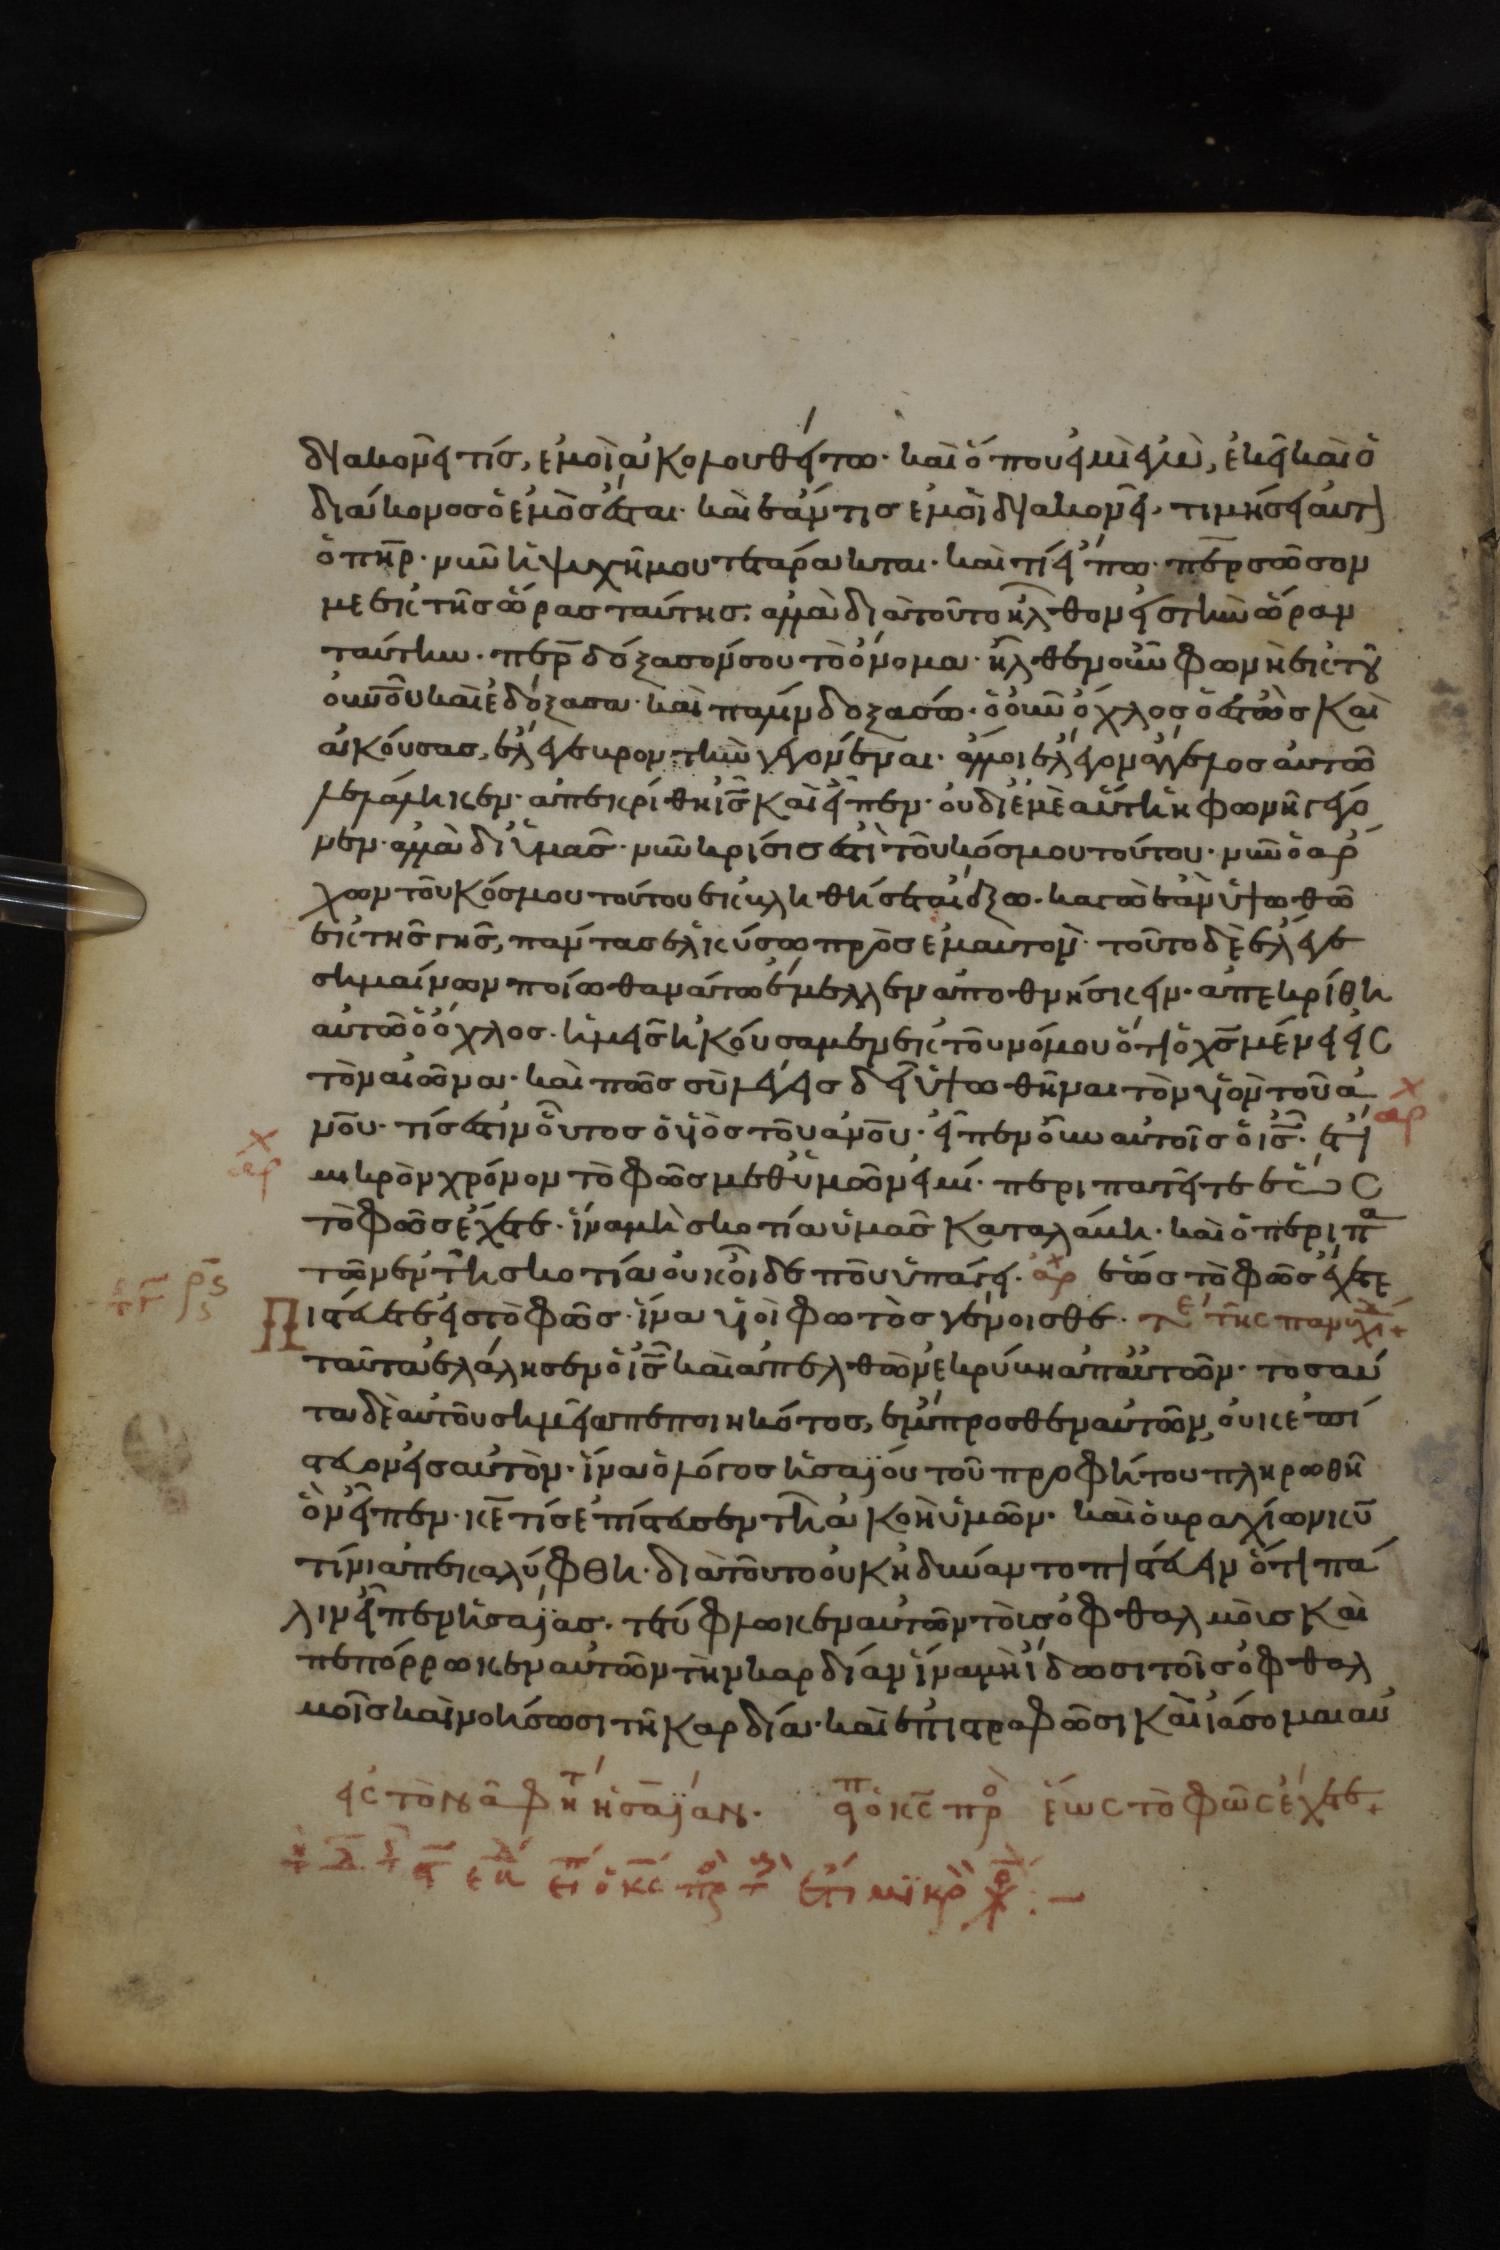 διακονεῖ τίσ, ἐμοὶ ἀκολουθείτω· καὶ ὅπου εἰμὶ ἐγὼ, ἐκεῖ καὶ ὁ
διάκονοσ ὁ ἐμὸσ ἔσται· καὶ ἐάν τισ ἐμοὶ διακονεῖ· τιμήσει αὐτ
ὁ πῆρ· νῦν ἡ ψυχή μου τετάρακται· καὶ τί εἴπω· περ σῶσον
με ἐκ τῆσ ὥρασ ταύτησ· ἀλλὰ διὰ τοῦτο ἦλθον εἰσ τὴν ὥραν
ταύτην· περ δόξασόν σου τὸ ὄνομα· ἦλθεν οὖν φωνὴ ἐκ τοῦ
οὐνοῦ καὶ ἐδόξασα· καὶ πάλιν δοξάσω· ὁ οὖν ὄχλοσ ὁ ἑστὼσ καὶ
ἀκούσασ, ἔλεγεν βροντὴν γεγονέναι· ἄλλοι ἔλεγον ἄγγελοσ αὐτῶ
λελάληκεν· ἀπεκρίθη ισ καὶ εἶπεν· οὐ δι ἐμὲ αὕτη ἡ φωνὴ γέγο
νεν· ἀλλὰ δι ὑμᾶσ· νῦν κρίσισ ἐστὶ τοῦ κόσμου τούτου· νῦν ὁ ἄρ
χων τοῦ κόσμου τούτου ἐκβληθήσεται ἔξω· καγὼ ἐὰν ὑψωθῶ
ἐκ τῆσ γῆσ, πάντασ ἑλκύσω πρὸσ ἐμαυτόν· τοῦτο δὲ ἔλεγε
σημαίνων ποίω θανάτω ἔμελλεν ἀποθνήσκειν· ἀπεκρίθη
αὐτῶ ὁ ὄχλοσ· ἡμεῖσ ἠκούσαμεν ἐκ τοῦ νόμου ὅτι ὁ χσ μένει εἰσ
τὸν αἰῶνα· καὶ πῶσ σὺ λέγεισ δεῖ ὑψωθῆναι τὸν υἱὸν τοῦ α
νου· τίσ ἐστιν οὗτοσ ὁ υἱὸσ τοῦ ανου· εἶπεν οὖν αὐτοῖσ ὁ ισ· ἔτι
μικρὸν χρόνον τὸ φῶσ μεθ ὑμῶν ἐστι· περιπατεῖτε ἕωσ
τὸ φῶσ ἔχετε· ἵνα μὴ σκοτία ὑμᾶσ καταλάβη· καὶ ὁ περιπα
τῶν ἐν τῆ σκοτία οὐκ οἶδε ποῦ ὑπάγει· ἀρχ ἕωσ τὸ φῶσ ἔχετε
Πιστεύετε εἰσ τὸ φῶσ· ἵνα υἱοὶ φωτὸσ γένησθε· τε τῆς παννυχι+
ταῦτα ἐλάλησεν ὁ ισ καὶ ἀπελθὼν ἐκρύβη ἀπ αὐτῶν· τοσαῦ
τα δὲ αὐτοῦ σημεῖα πεποιηκότοσ, ἔμπροσθεν αὐτῶν, οὐκ ἐπί
στευον εἰσ αὐτὸν· ἵνα ὁ λόγοσ ἡσαΐου τοῦ προφήτου πληρωθῆ
ὃν εἶπεν· κε τίσ ἐπίστευσεν τῆ ἀκοῆ ὑμῶν· καὶ ὁ βραχίων κυ
τίνι ἀπεκαλύφθη· διὰ τοῦτο οὐκ ἠδύναντο πιστεύειν ὅτι πά
λιν εἶπεν ἡσαΐασ· τετύφλωκεν αὐτῶν τοὺσ ὀφθαλμοὺσ καὶ
πεπόρρωκεν αὐτῶν τὴν καρδίαν ἵνα μὴ ἴδωσι τοῖσ ὀφθαλ
μοῖσ καὶ νοήσωσι τῆ καρδία· καὶ ἐπιστραφῶσι καὶ ἰάσομαι αὐ
εἰς τὸν προφήτ ἡσαΐαν· εἶπ ὁ κς πρ ἕως τὸ φῶς ἔχετε+
εἶπ ὁ κς πρ ἔτι μικρὸ χρ :—